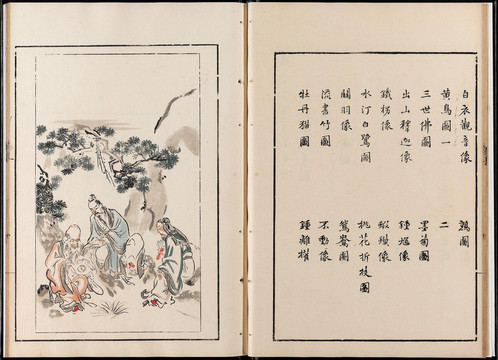 白衣觀音像 圖
黄鳥圖一 二
三世佛圖 墨菊圖
出山釋迦像 鍾馗像
鐵枴像 像
水汀白鷺圖 桃花折枝圖
關羽像 鴛鴦圖
流書竹圖 不動像
牡丹猫圖 鍾離權